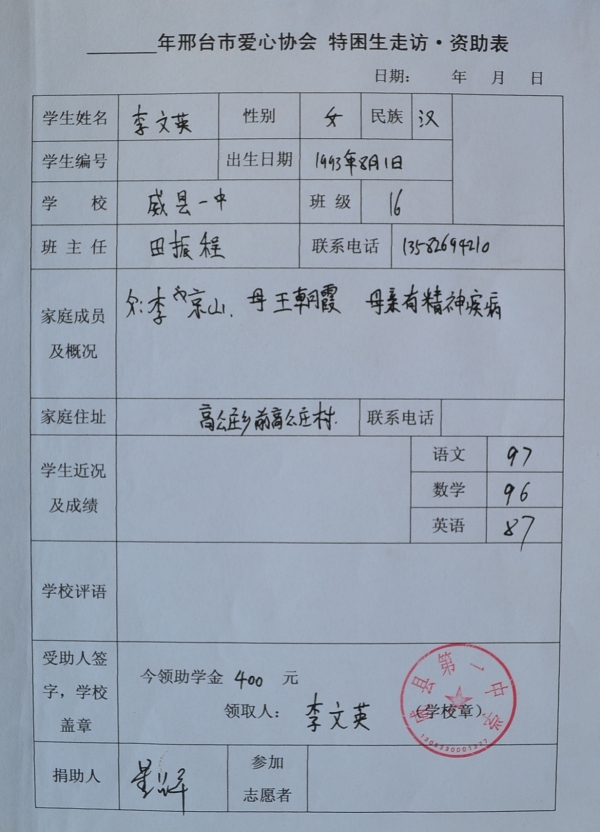 年邢台市爱心协会 特困生走访·资助表
日期： 年 月 日
学生姓名 李文英 性别 女 民族 汉
学生编号 出生日期 1993年8月1日
学 校 威县一中 班 级 16
班 主 任 田振程 联系电话 13582694210
家庭成员及概况 父:李京山、母王朝霞 母亲有精神疾病
家庭住址 高公庄乡前高公庄村. 联系电话
学生近况及成绩
语文 97
数学 96
英语 87
学校评语
受助人签字，学校盖章
今领助学金 400 元
领取人： 李文英 （学校章）
威县第一中学
捐助人
参加志愿者